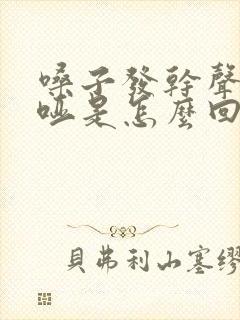 嗓子發幹聲
啞是怎麼回
貝弗利山塞繆